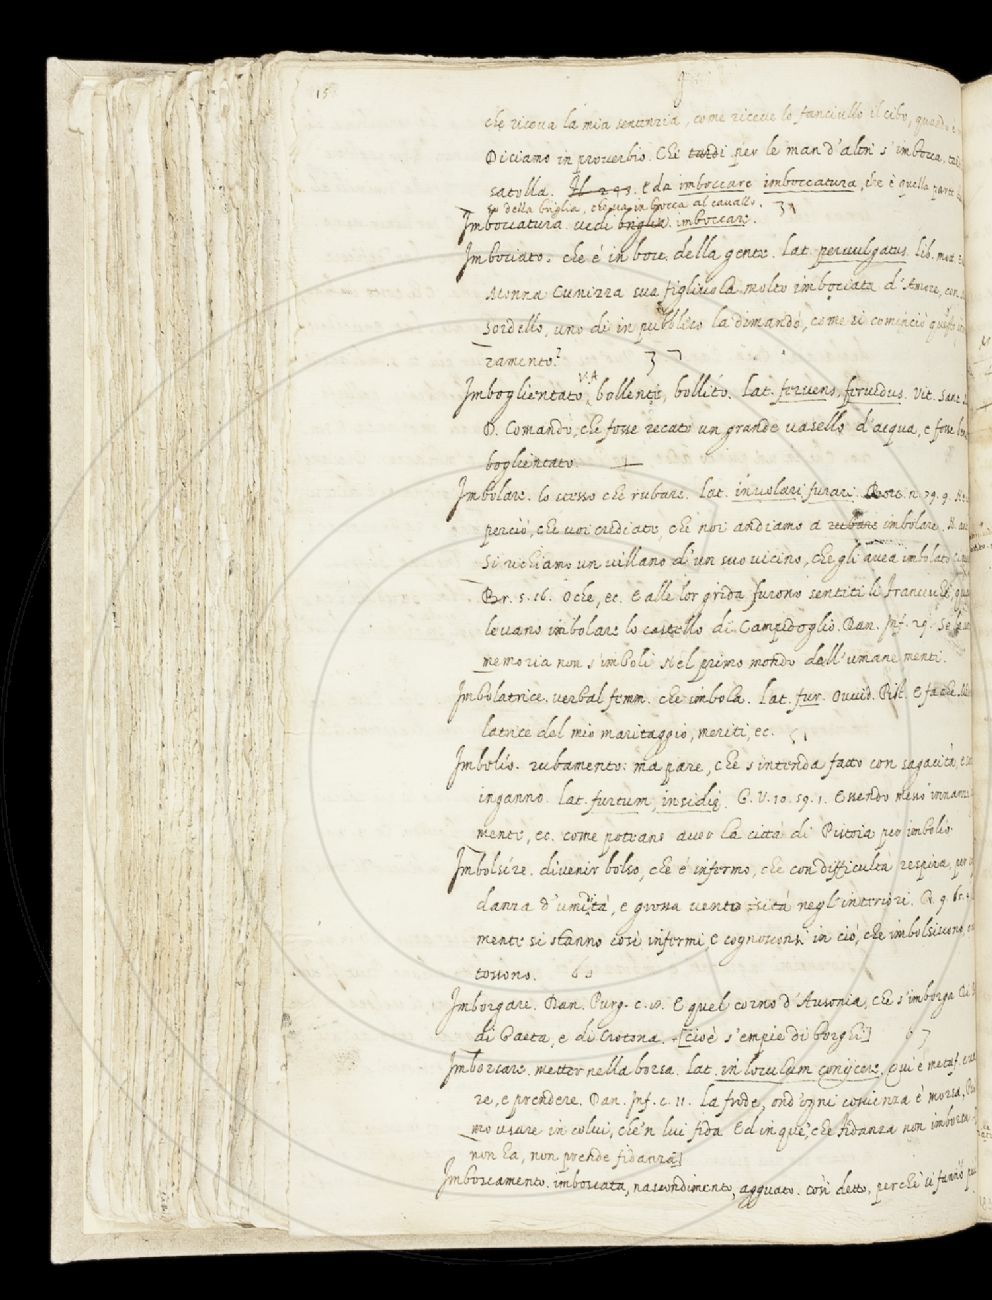 15
che riceva la mia sentenzia, come riceve lo fanciullo il cibo,
Diciamo in proverbio. Chi tardi per le man d'altri s'imbocca,
satolla. E da imboccare imboccatura, che è quella parte
della briglia, che va in bocca al cavallo.
Imboccatura. vedi briglia imboccare.
Imbociato. che è in boce della gente. Lat. pervulgatus. Lib.
Monna Cunizza sua figliuola molto imbociata d'Amore, con
Sordello, uno dì in pubblico la dimandò, come si cominciò questo
ramento?
Imboglientato V.A. bollente, bollito. Lat. fervens, fervidus. Vit. San
D. Comandò, che fosse recato un grande vasello d'acqua, e fosse
boglientato.
Imbolare. lo stesso che rubare. Lat. involari furari. n. 79. 9.
perciò, che voi crediate, che noi andiamo a rubare imbolare.
Si richiamò un villano d'un suo vicino, che gli avea imbolato
Br. 5. 16. Oche, ec. E alle lor grida furono sentiti li Franceschi,
levano imbolare lo castello di Campidoglio. Dan. Inf. 29. Se la
memoria non s'imboli Nel primo mondo dall'umane menti.
Imbolatrice. verbal femm. che imbola. Lat. fur. Ovvid. Pist. E
latrice del mio maritaggio, meriti, ec.
Imbolio. rubamento: ma pare, che s'intenda fatto con sagacità,
inganno. Lat. furtum, insidię. G. V. 10. 59. 1. Essendo messo innanzi
mente, ec. come potrano aver la città di Pistoia per imbolio.
Imbolsire. divenir bolso, che è infermo, che con difficultà respira,
danza d'umidità, e grossa ventosità negl'interiori.
mente si stanno così infermi, e cognosconsi in ciò, che imbolsiscono,
tossono.
Imborgare. Dan. Purg. c. E quel corno d'Ausonia, che s'imborga
di Gaeta, e di Crotona. [cioè s'empie di borghi]
Imborsare. metter nella borsa. Lat. in loculum conijcere. Qui è metaf.
re, e prendere. Dan. Inf. c. 11. La frode, ond'ogni coscienza è morsa,
mo usare in colui, che'n lui fida Ed in que', che fidanza non imborsa
non ha, non prende fidanza]
Imboscamento. imboscata, nascondimento, agguato. così detto, perchè si fanno